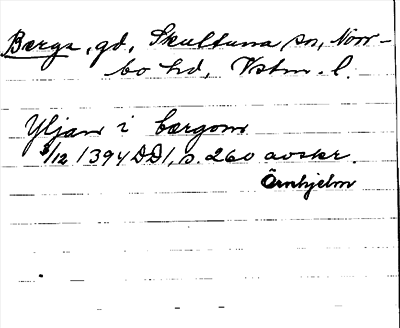 Berga, gd, Skultuna sn, Norr-
bo hd, Vstm. l.
Yljan i bærgom
8/12 1394 DD1, s. 260 avskr.
Örnhjelm